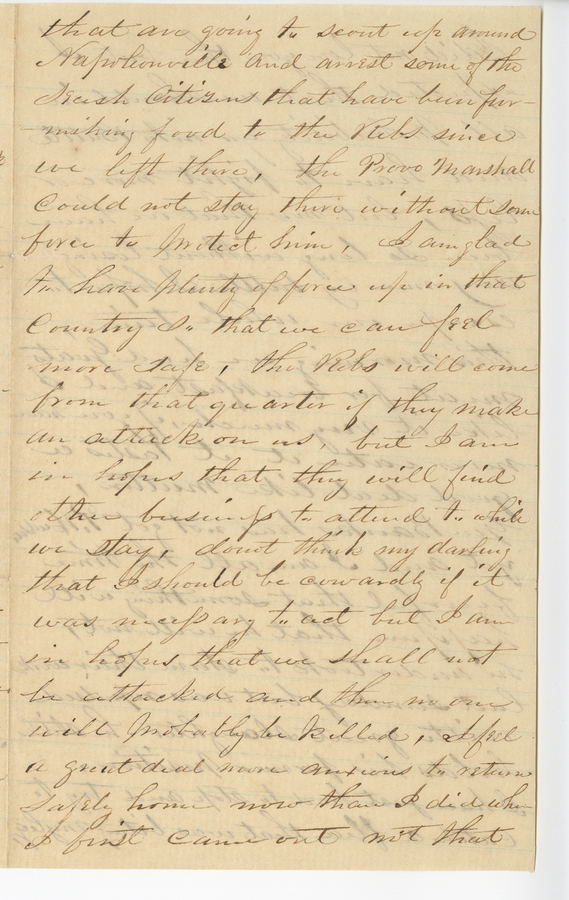 that are going to scout up around
Napoleonville and arrest some of the
Secish Citizens that have been fur-
-nishing food to the Rebs since
we left there, the Provo Marshall
could not stay there without some
force to protect him, I am glad
to have plenty of force up in that
Country so that we can feel
more safe, the Rebs will come
from that quarter if they make
an attack on us, but I am
in hopes that they will find
other business to attend to while
we stay, dont think my darling
that I should be cowardly if it
was necessary to act but I am
in hopes that we shall not
be attacked and then no one
will probably be killed, I feel
a great deal more anxious to return
safely home now than I did when
I first came out not that